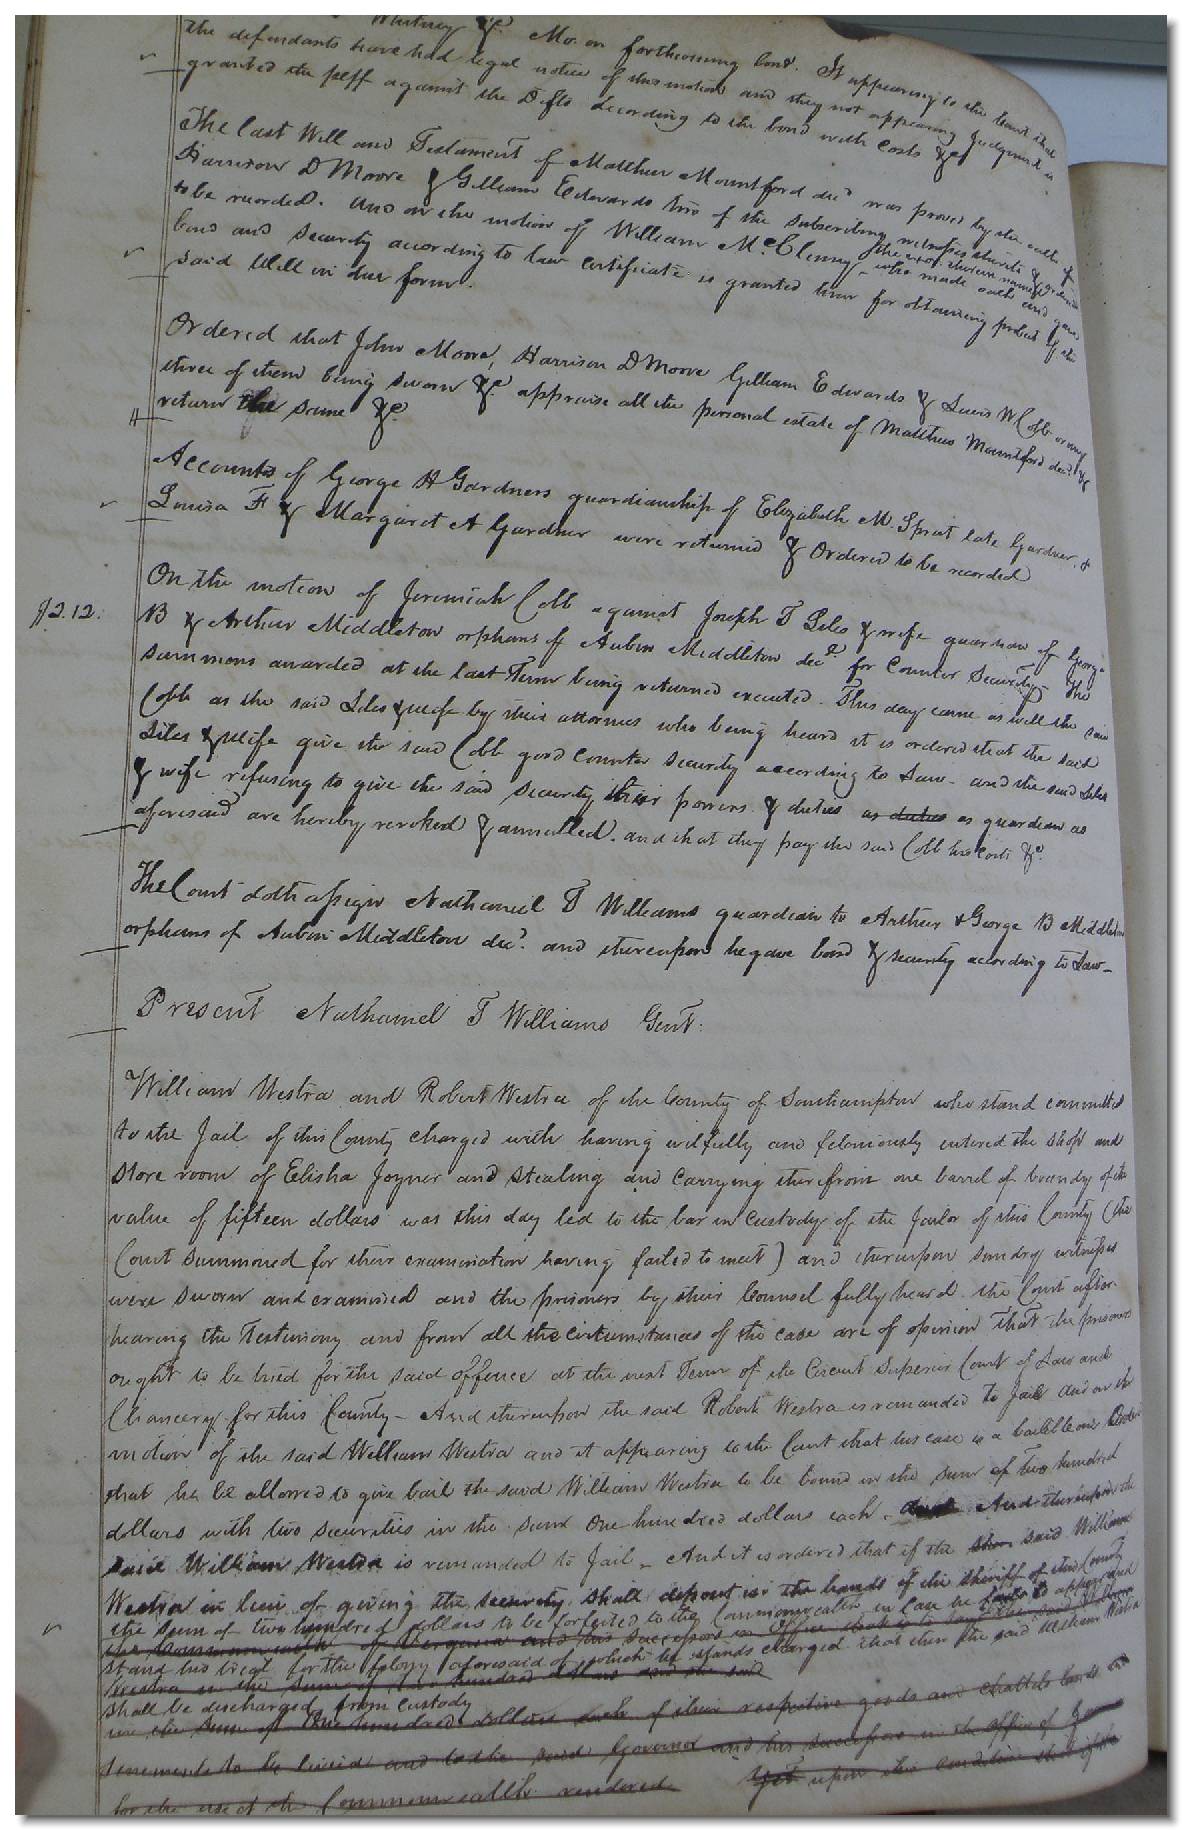 Whitney &c. Mo. on forthcoming bond. It appearing to the Court that
the defendants have had legal notice of this motion and they not appearing Judgment is
granted the plff against the Defts according to the bond with Costs &c
The last Will and Testament of Matthew Mountford decd was proved by the oath of
Harrison D Moore & Gilliam Edwards two of the subscribing witnesses thereto & ordered
to be recorded. And on the motion of William McClenny the exor. therein named who made oath and gave
bond and security according to law certificate is granted him for obtaining probat of the
said Will in due form.
Ordered that John Moore, Harrison D Moore Gilliam Edwards & Lewis W Cobb or any
three of them being sworn &c. appraise all the personal estate of Matthew Mountford decd. &
return the same &c.
Accounts of George H Gardners guardianship of Elizabeth M. Sprat late Gardner, &
Louisa F & Margaret A Gardner were returned & Ordered to be recorded
On the motion of Jeremiah Cobb against Joseph T Liles & wife guardian of George
$2.12.
B & Arthur Middleton orphans of Aubin Middleton decd. for Counter Security. The
summons awarded at the last Term being returned executed. This day came as well the said
Cobb as the said Liles & wife by their attornies who being heard it is ordered that the said
Liles & wife give the said Cobb good Counter security according to Law - and the said Liles
& wife refusing to give the said security their powers & duties as duties as guardian as
aforesaid are hereby revoked & annulled. and that they pay the said Cobb his costs &c.
The Court doth assign Nathaniel T Williams guardian to Arthur & George B Middleton
orphans of Aubin Middleton decd. and thereupon he gave bond & security according to Law -
Present Nathaniel T Williams Gent:
William Westra and Robert Westra of the County of Southampton who stand committed
to the Jail of this County charged with having wilfully and feloniously entered the shop and
store room of Elisha Joyner and stealing and carrying therefrom one barrel of brandy of the
value of fifteen dollars was this day led to the bar in custody of the Jailor of this County (the
Court summoned for their examination having failed to meet) and thereupon sundry witnesses
were sworn and examined and the prisoners by their Counsel fully heard the Court after
hearing the Testimony and from all the circumstances of the case are of opinion that the prisoners
ought to be tried for the said offence at the next Term of the Circuit Superior Court of Law and
Chancery for this County - And thereupon the said Robert Westra is remanded to Jail and on the
motion of the said William Westra and it appearing to the Court that his case is a bailable one Ordered
that he be allowed to give bail the said William Westra to be bound in the sum of two hundred
dollars with two securities in the sum One hundred dollars each. And thereupon the
said William Westra is remanded to Jail - And it is ordered that if the said William
Westra in lieu of giving the security shall deposit in the hands of the sheriff of this County
the sum of two hundred dollars to be forfeited to the Commonwealth in case he fails to appear and
the Commonwealth of Virginia and his successors in office
stand his trial for the felony aforesaid of which he stands charged that then the said William Westra
Westra in the sum of two hundred dollars and the said
shall be discharged from custody
in the sum of One hundred dollars each of their respective goods and chattels lands and
tenements to be levied and to the said Governor and his successors in the office of
for the use of the Commonwealth rendered Yet upon this condition that if the